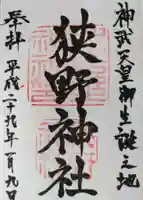 神武天皇御生誕之地
狭野神社
奉拝 平成二十九年一月九日